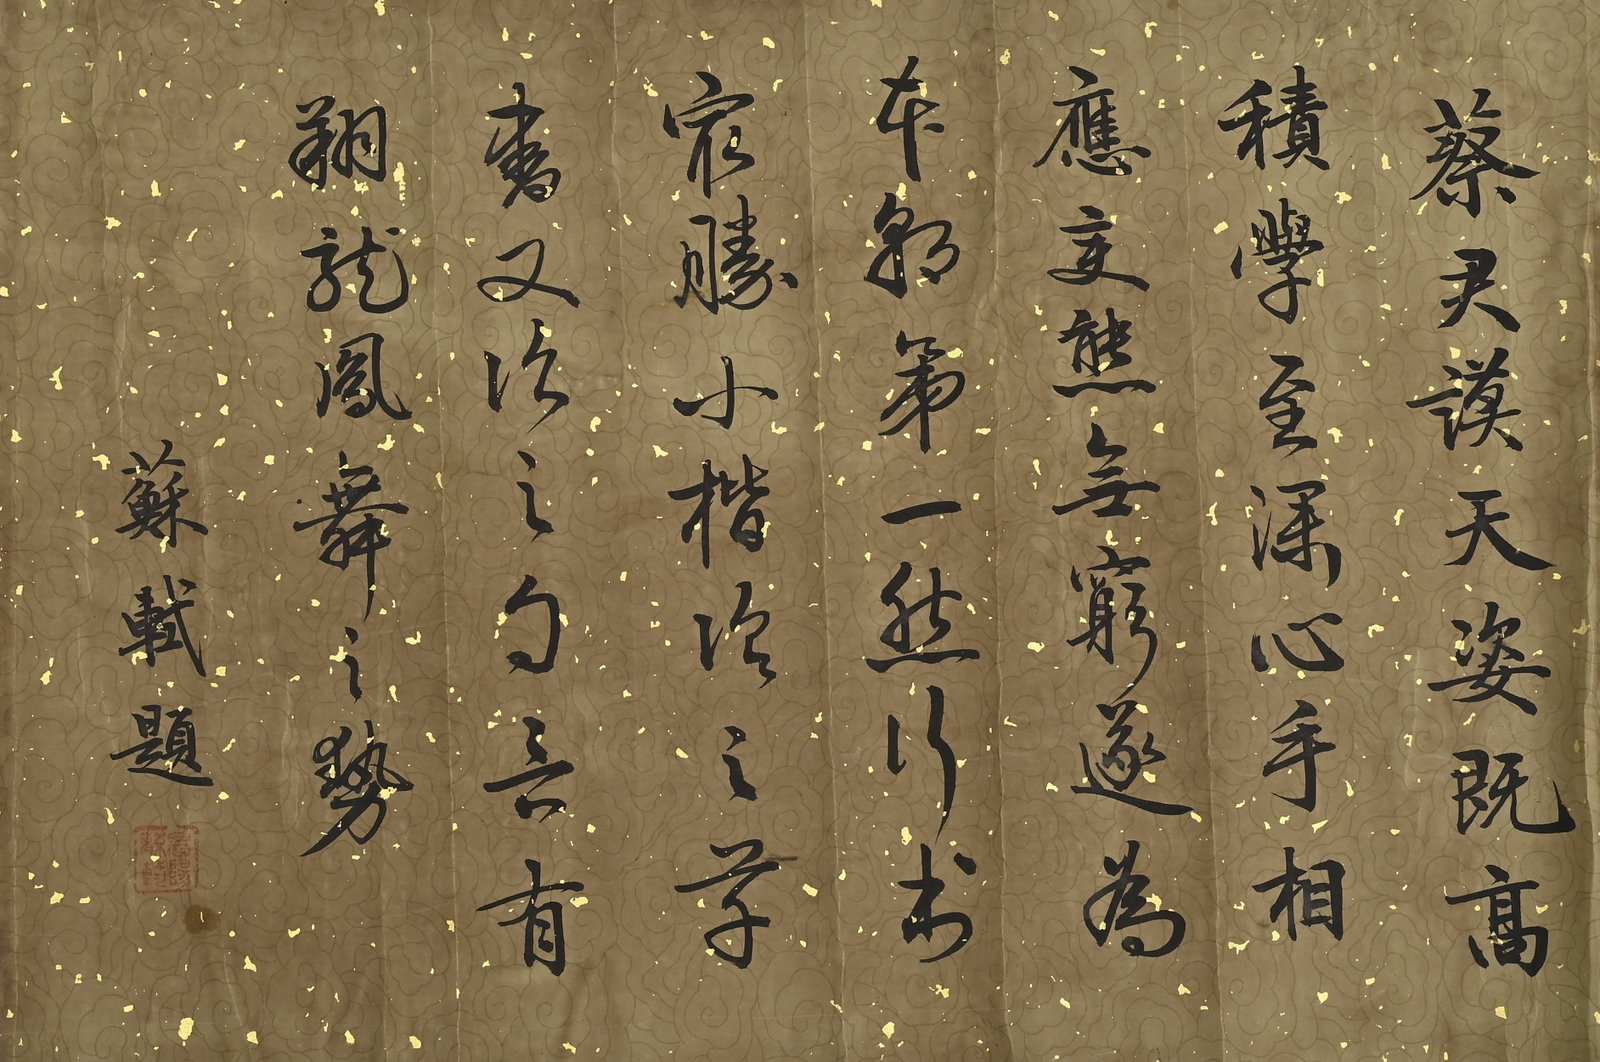 蔡君謨天姿既高
積學至深心手相
應變態無窮遂為
本朝第一然行書
最勝小楷次之草
書又次之自言有
翔龍鳳舞之勢
蘇軾題